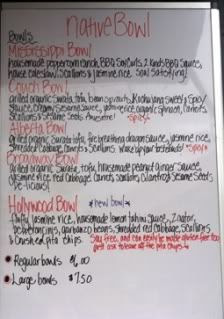 native Bowl
Bowls
Mississippi Bowl
housemade peppercorn ranch, BBQ 2 kinds BBQ sauce,
house coleslaw, Scallions & jasmine rice. Soul Satisfying!
Couch Bowl
grilled organic Surata tofu, bean sprouts, Kochujang sweet & spicy
sauce, creamy sesame sauce, jasmine rice, organic spinach, carrots,
Scallions & Sesame Seeds. Awesome! *spicy*
Alberta Bowl
grilled organic Surata tofu, fire breathing dragon sauce, jasmine rice,
shredded cabbage, carrots & Scallions. wake up your tastebuds! *spicy*
Broadway Bowl
grilled organic Surata tofu, housemade peanut ginger sauce,
jasmine rice, red cabbage, carrots, Scallions, cilantro & Sesame Seeds
De-licious!
Hollywood Bowl *new bowl*
fluffy jasmine rice, housemade lemon tahini sauce, Zaatar,
pepperoncinis, garbanzo beans, shredded red cabbage, Scallions,
& crushed pita chips. Soy free, and can easily be made gluten free too
just ask to leave off the pita chips
Regular bowls
Large bowls $7.50